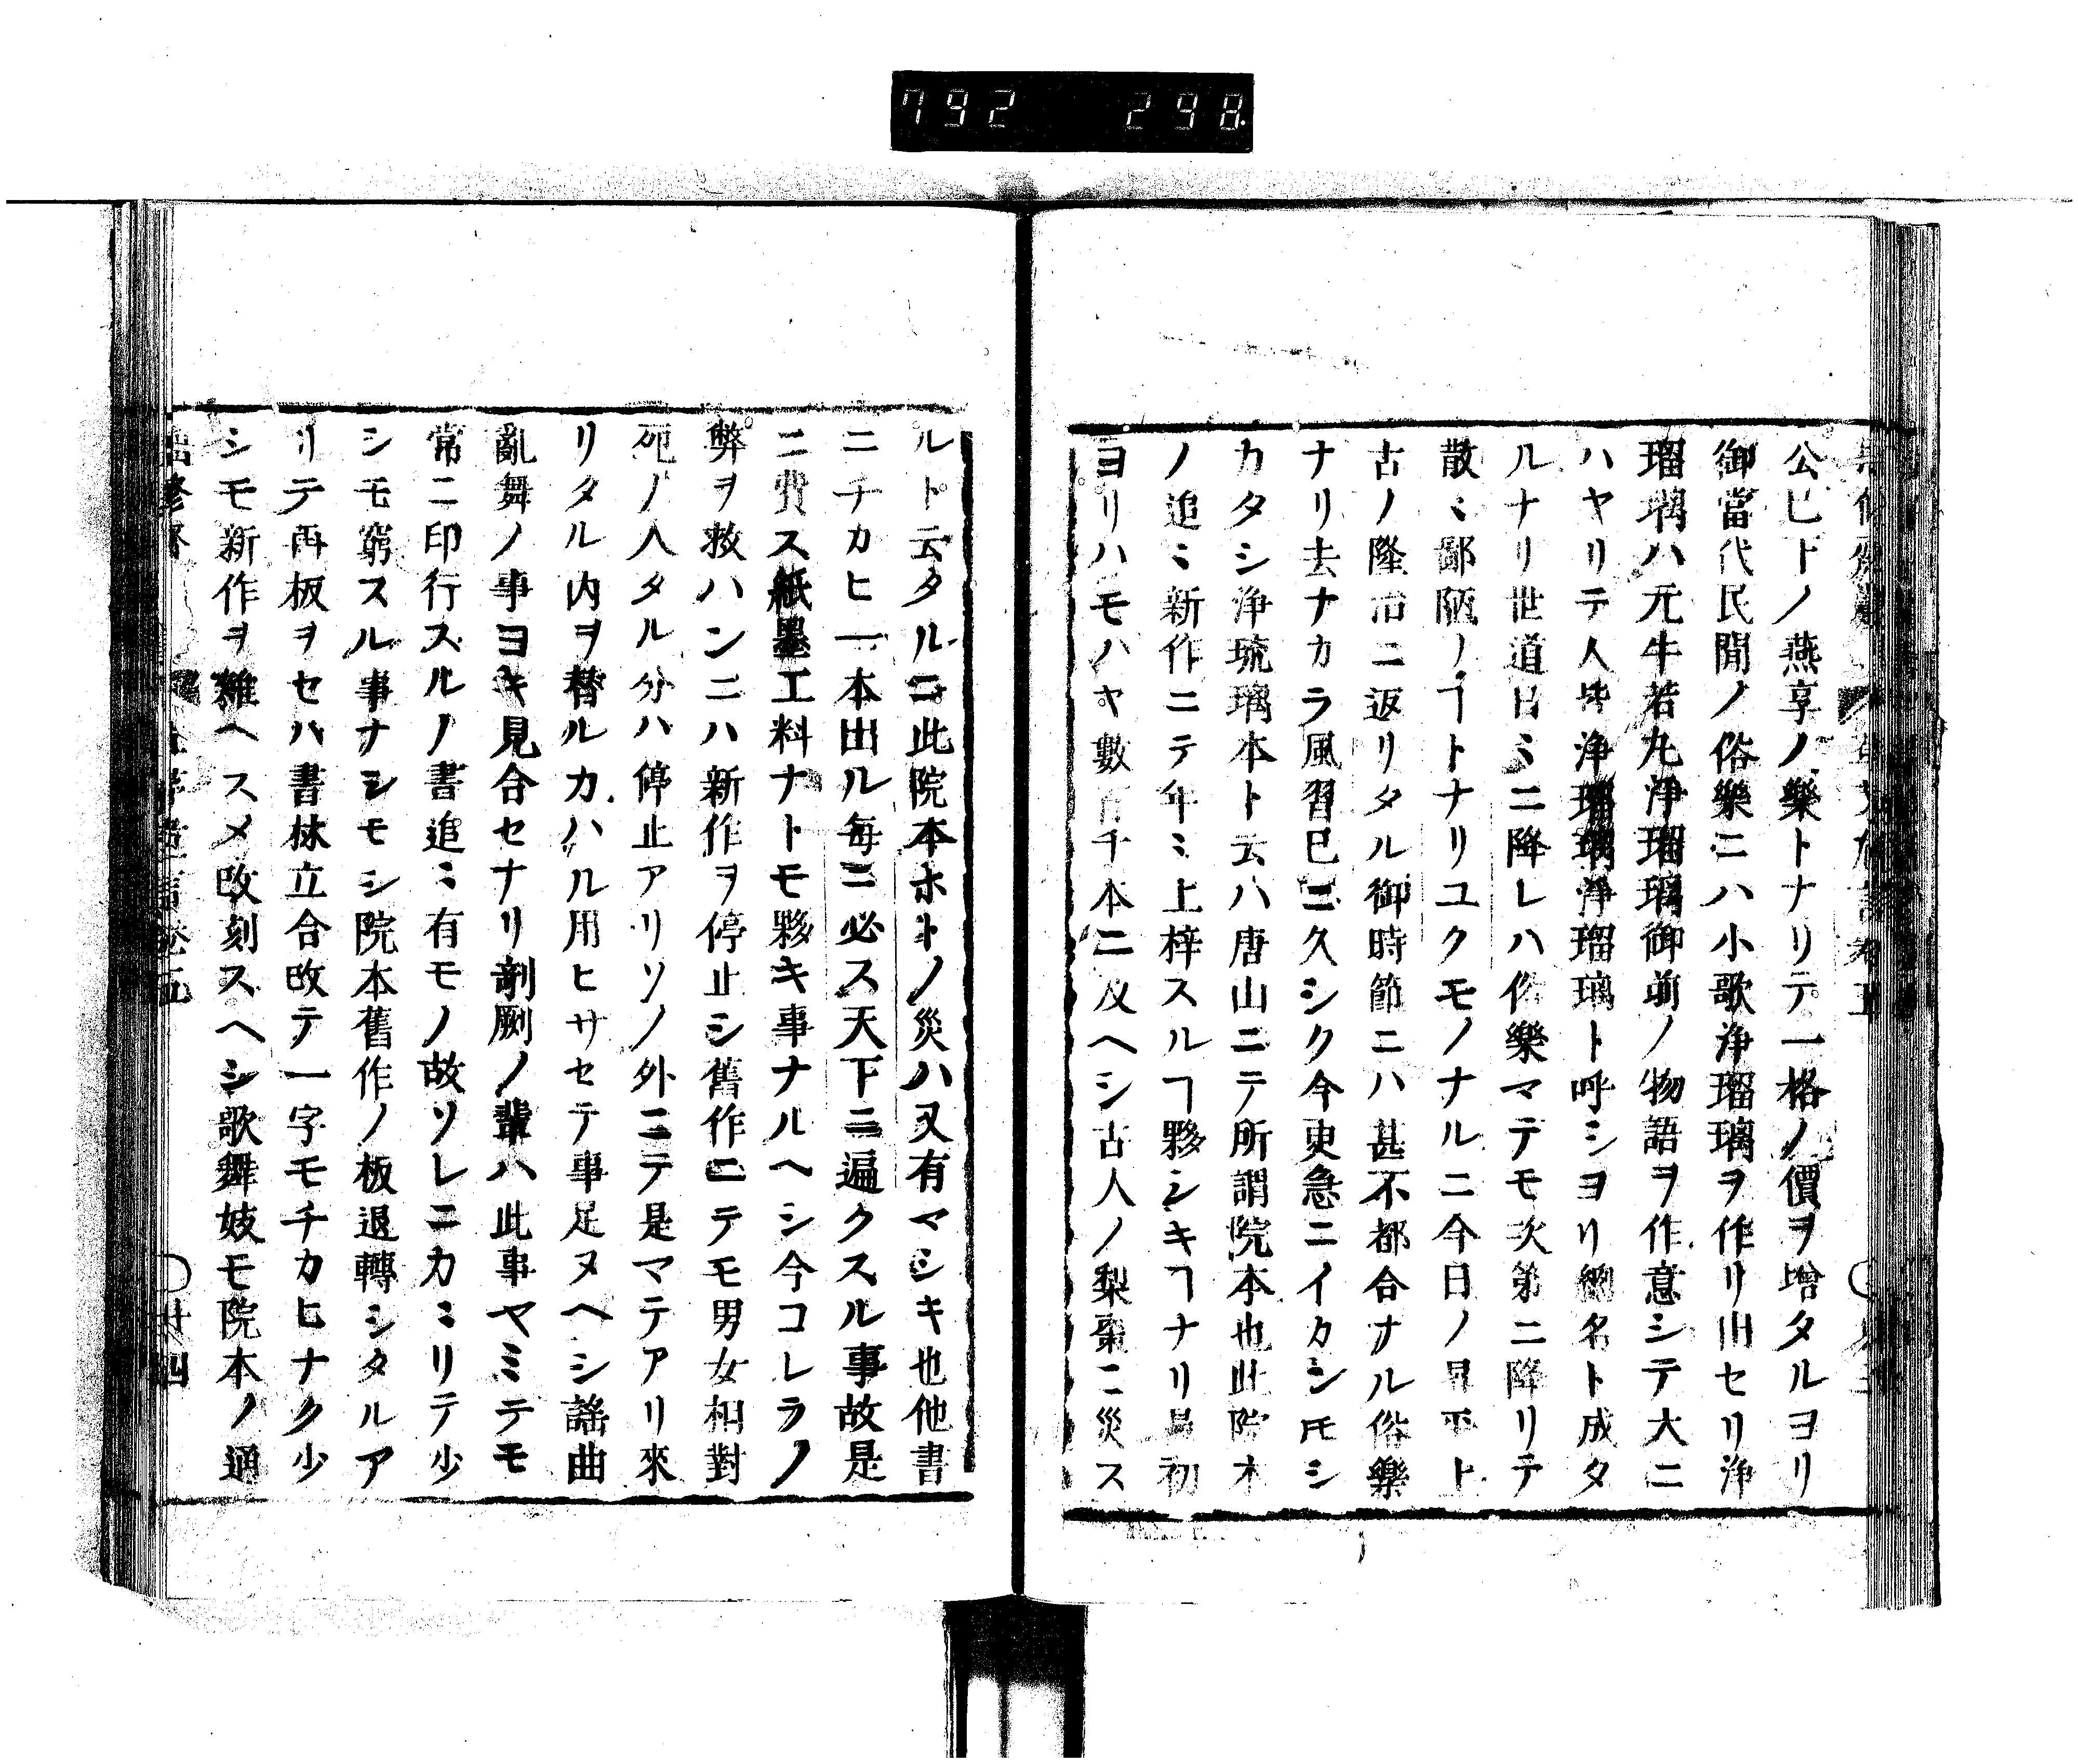 792 298
公已下ノ燕享ノ樂トナリテ一格ノ價ヲ増タルヨリ
御當代民間ノ俗樂ニハ小歌浄瑠璃ヲ作リ出セリ浄
瑠璃ハ元牛若丸浄瑠璃御前ノ物語ヲ作意シテ大ニ
ハヤリテ人皆浄瑠璃浄瑠璃ト呼シヨリ總名ト成タ
ルナリ世道日ミニ降レハ俗樂マテモ次第ニ降リテ
散ミ鄙陋ノヿトナリユクモノナルニ今日ノ昇平ト
古ノ隆治ニ返リタル御時節ニハ甚不都合ナル俗樂
ナリ去ナカラ風習已ニ久シク今更急ニイカンシ
カタシ浄琉璃本ト云ハ唐山ニテ所謂院本也此院本
ノ追ミ新作ニテ年ミ上梓スルヿ夥シキヿナリ最初
ヨリハモハヤ數百千本ニ及ヘシ古人ノ梨棗ニ災ス
ルト云タルニ此院本ホトノ災ハ又有マシキ也他書
ニチカヒ一本出ル毎ニ必ス天下ニ遍クスル事故是
ニ費ス紙墨工料ナトモ夥キ事ナルヘシ今コレラノ
弊ヲ救ハンニハ新作ヲ停止シ舊作ニテモ男女相對
死ノ入タル分ハ停止アリソノ外ニテ是マテアリ來
リタル内ヲ替ルカハル用ヒサセテ事足ヌヘシ謡曲
亂舞ノ事ヨキ見合セナリ剞劂ノ輩ハ此事ヤミテモ
常ニ印行スルノ書追ミ有モノ故ソレニカミリテ少
シモ窮スル事ナシモシ院本舊作ノ板退轉シタルア
リテ再板ヲセハ書林立合改テ一字モチカヒナク少
シモ新作ヲ雜ヘスメ改刻スヘシ歌舞妓モ院本ノ通